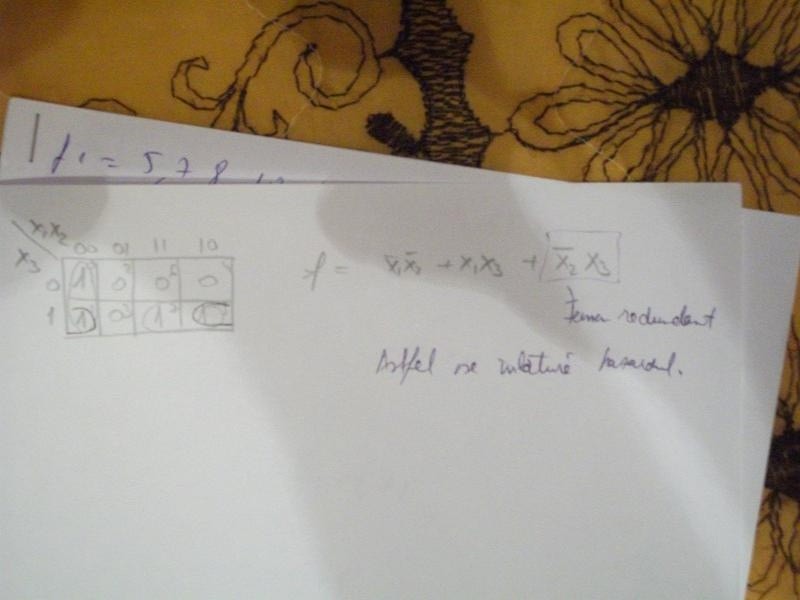 f1 = 5,7,8
x₁x₂
00 01 11 10
x₃
0 1 0 0 0
1 1 0 1 1
f = x̄₁x̄₂ + x₁x₃ + x̄₂ x₃
termen redundant
Astfel se înlătură hazardul.